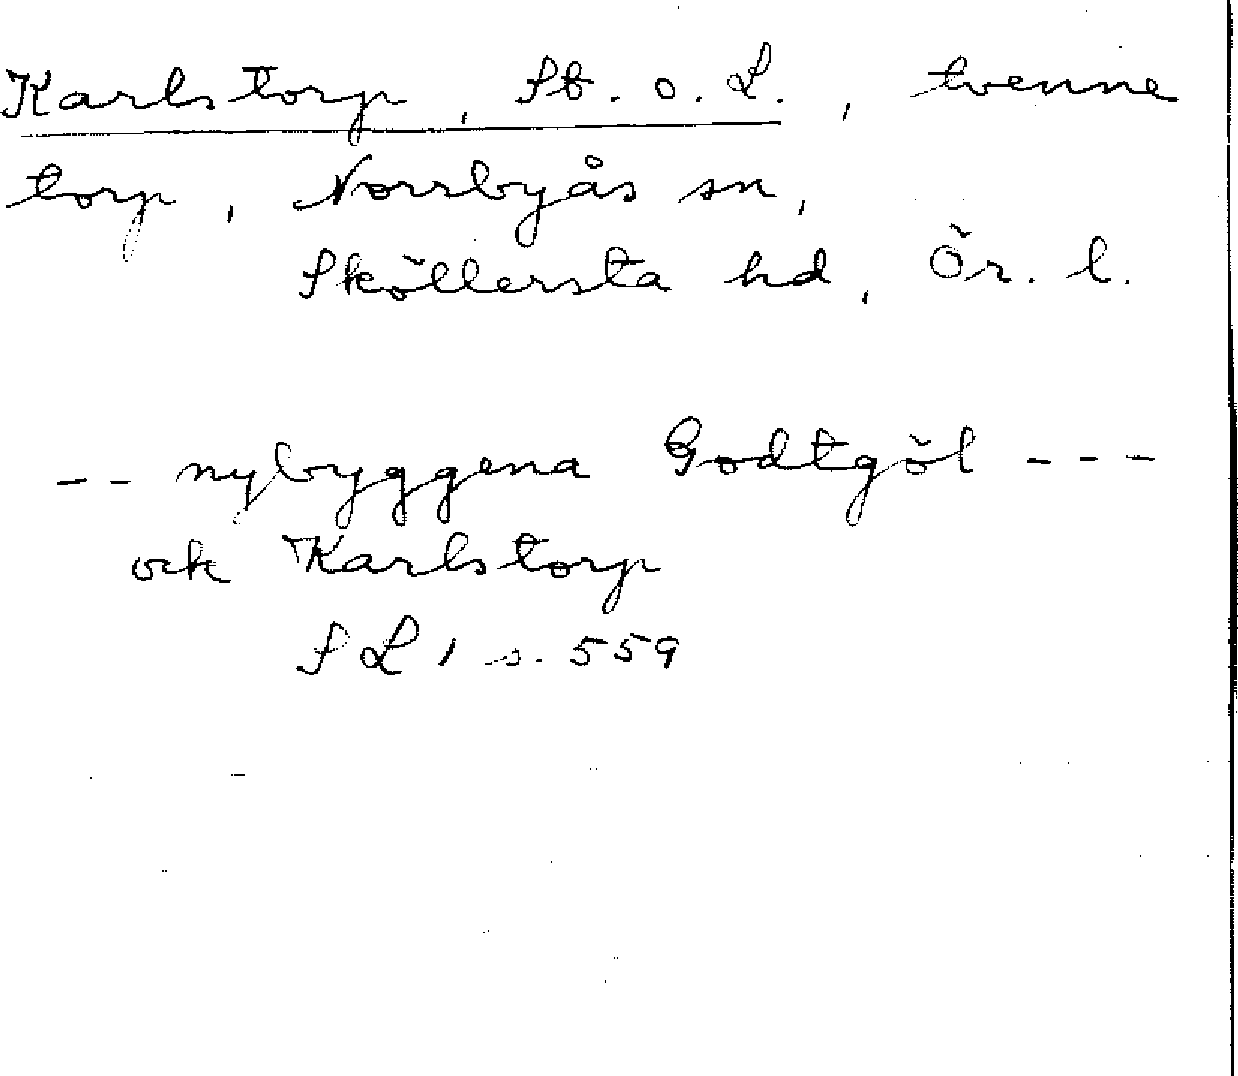 Karlstorp, St. o. L., tvenne
torp, Norrbyås sn,
Sköllersta hd, Ör. l.
-- nybyggena Godtgöl ---
och Karlstorp
SL 1 s. 559